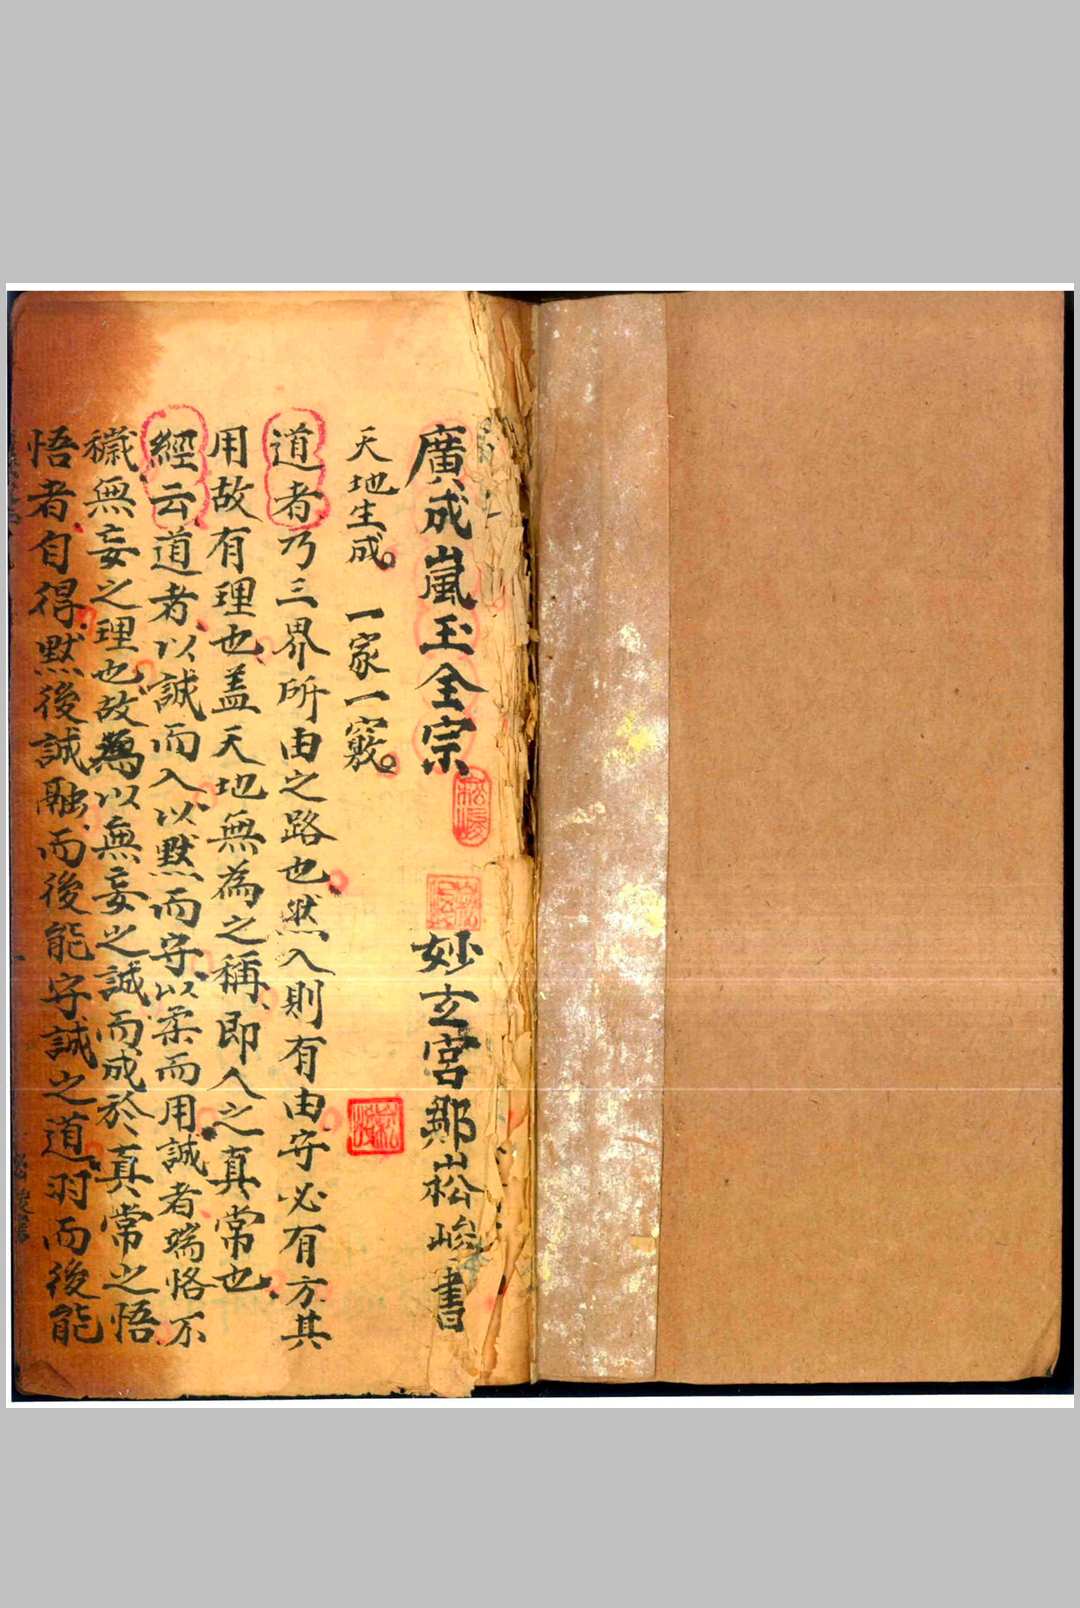 廣成嵐玉全宗
妙玄宮鄭崧峻書
天地生成。一家一竅。
道者乃三界所由之路也然入則有由守必有方其
用故有理也盖天地無為之稱即人之真常也
經云道者以誠而入以默而守以柔而用誠者端恪不
穢無妄之理也故為以無妄之誠而成於真常之悟
悟者自得默後誠融而後能守誠之道羽而後能